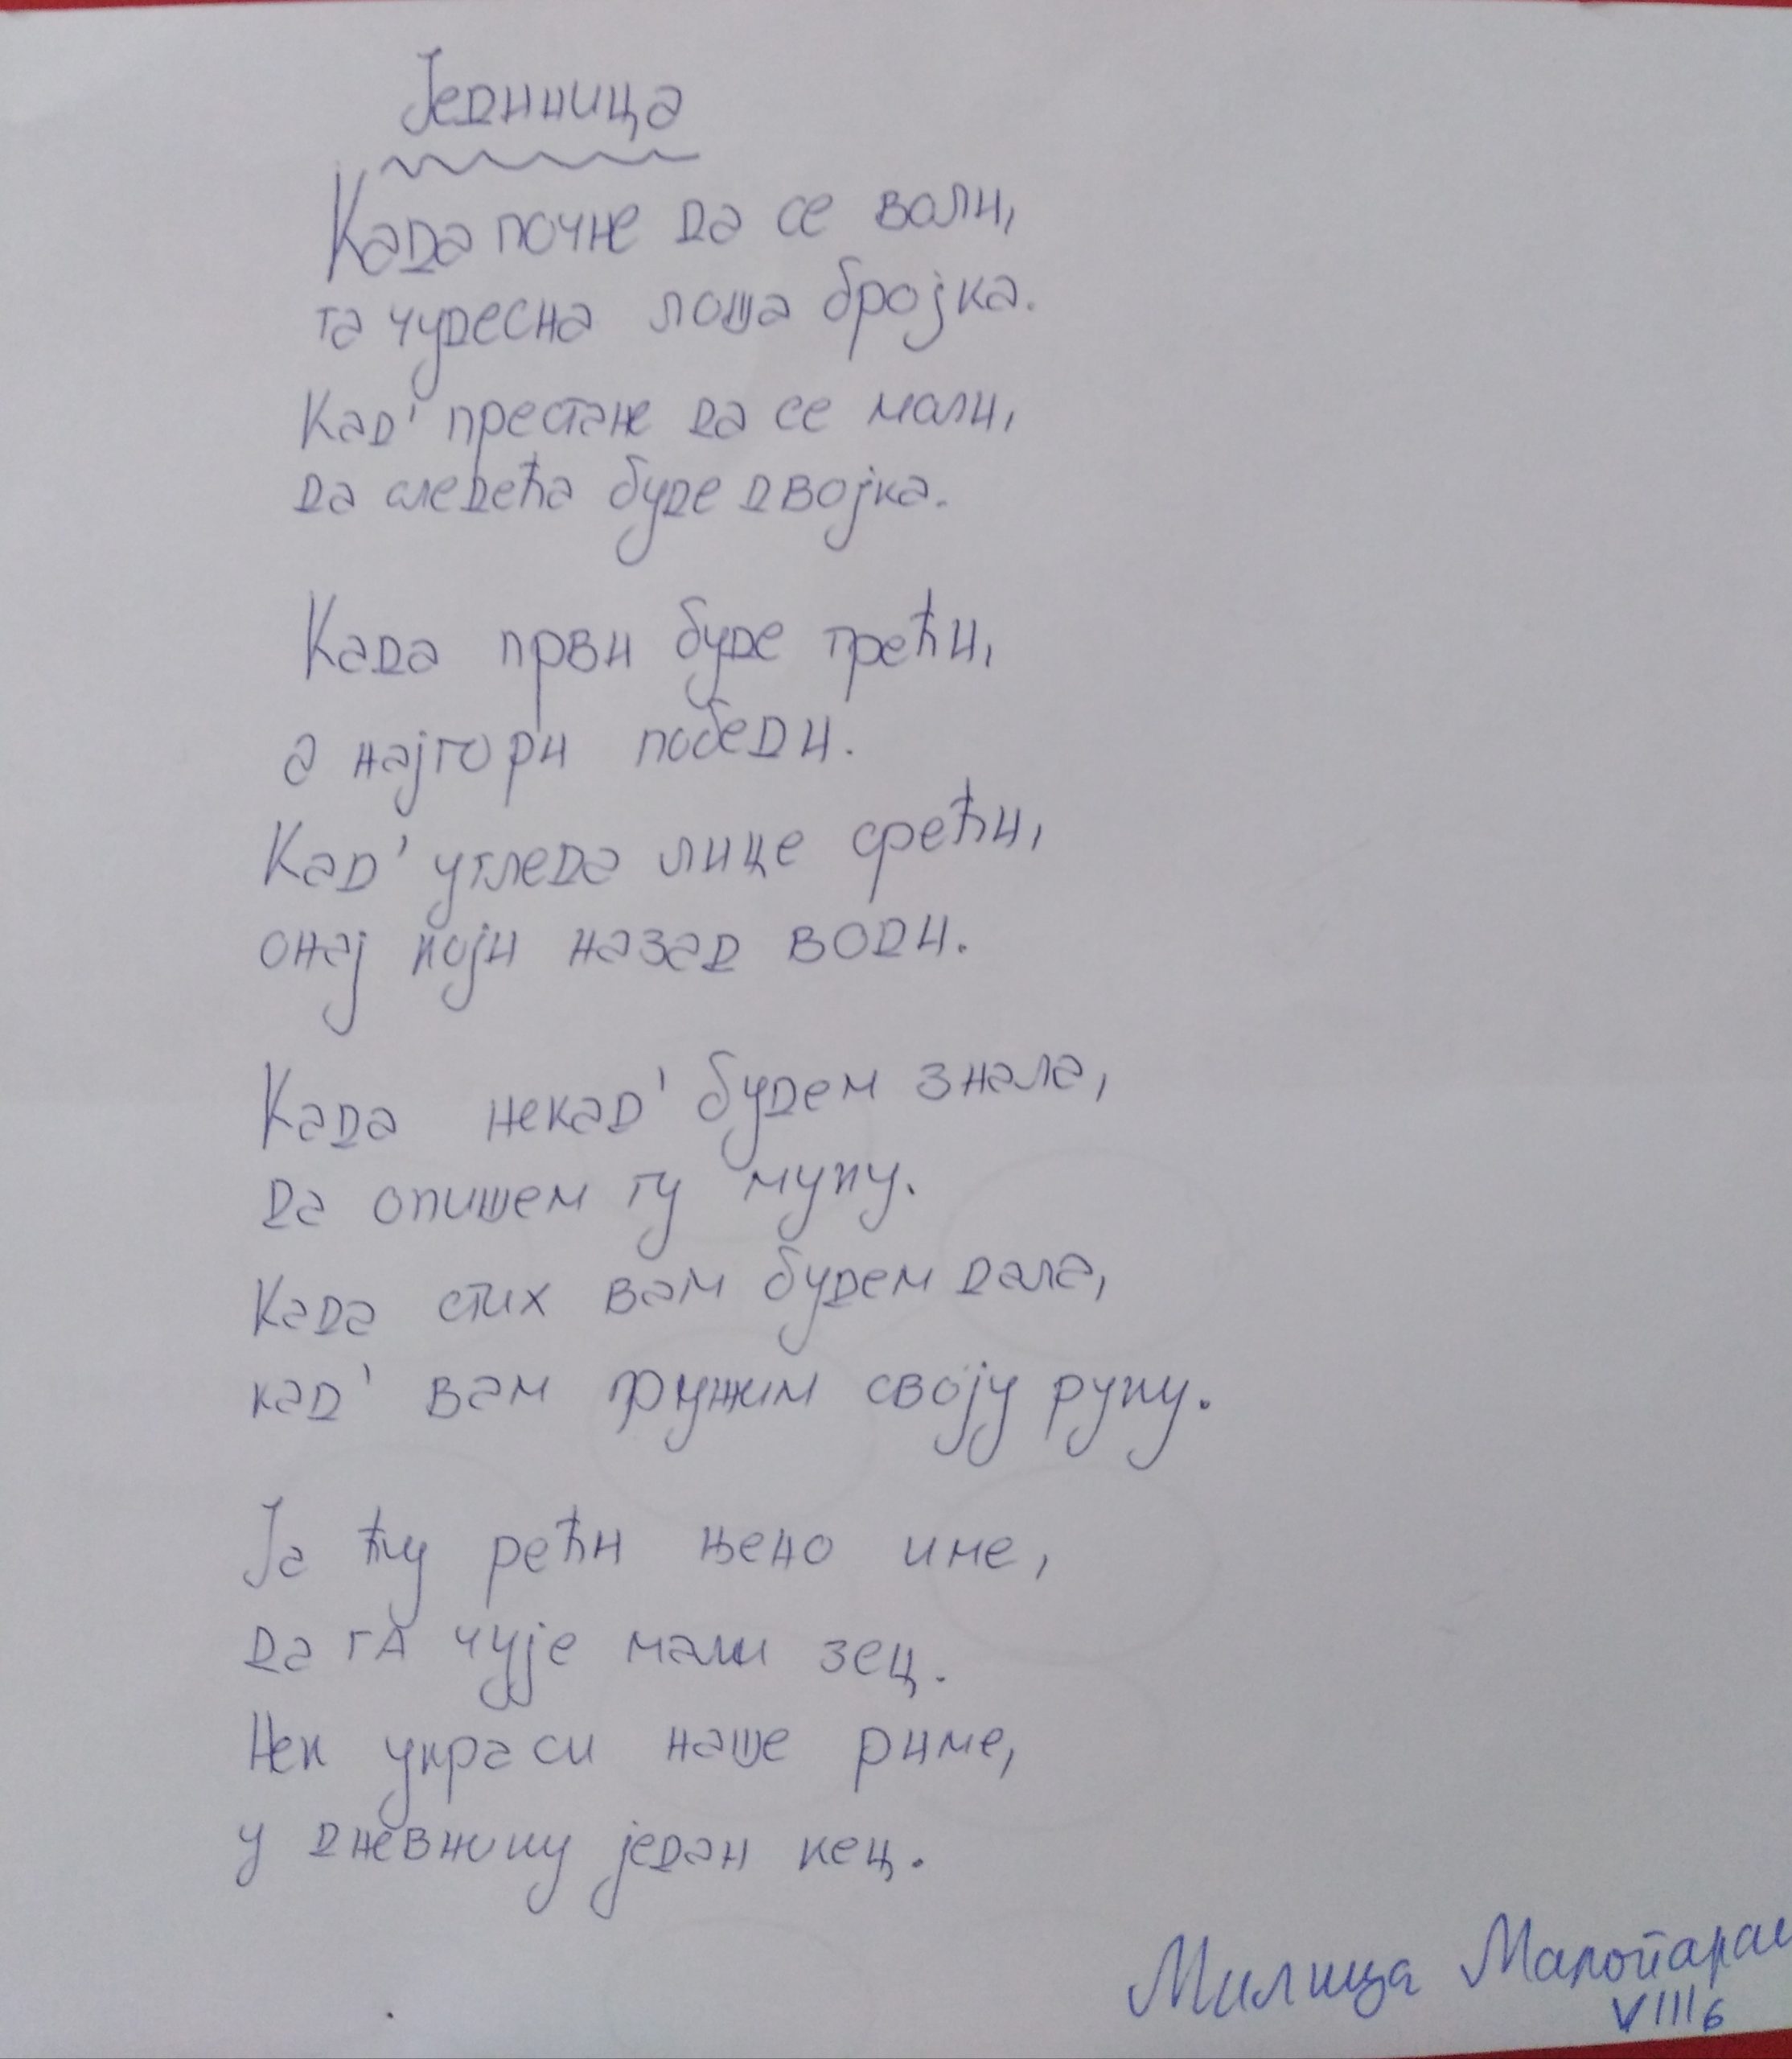 Јединица
Када почне да се воли,
та чудесна лоша бројка.
Кад' престане да се моли,
да следећа буде двојка.
Када први буде трећи,
а најгори победи.
Кад' угледа лице срећи,
онај који назад води.
Када некад' будем знала,
да опишем ту муку.
Када стих вам будем дала,
кад' вам пружим своју руку.
Ја ћу рећи њено име,
да га чује мали зец.
Нек украси наше риме,
у дневнику један кец.
Милица
VIII6